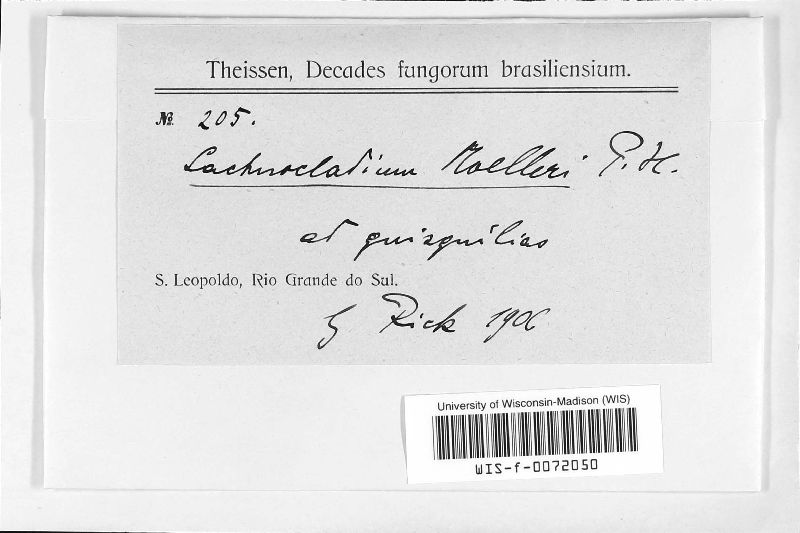 Theissen, Decades fungorum brasiliensium.
№ 205.
Lachnocladium Moelleri P. H.
ad quisquilias
S. Leopoldo, Rio Grande do Sul.
lg Rick 1906
University of Wisconsin-Madison (WIS)
WIS-f-0072050